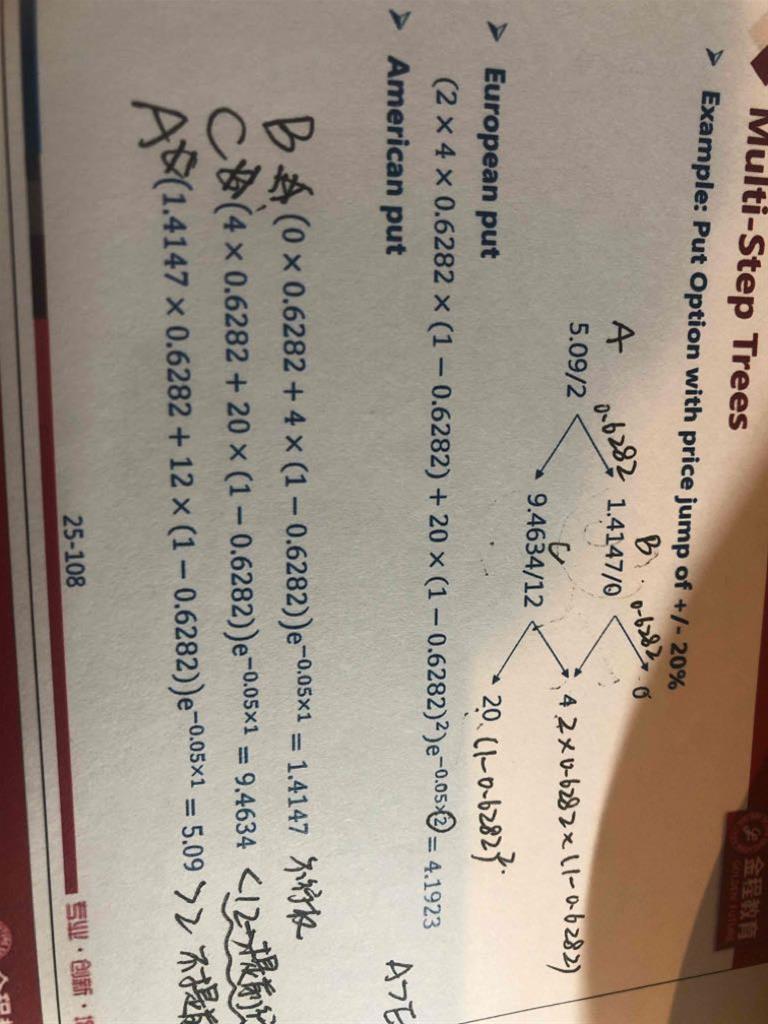 Multi-Step Trees
金程教育
GOLDEN FUTURE
➤ Example: Put Option with price jump of +/- 20%
B
0.6282
0
A
0.6282
1.4147/0
5.09/2
4 2×0.6282×(1-0.6282)
C
9.4634/12
20 (1-0.6282)²
➤ European put
(2 × 4 × 0.6282 × (1 − 0.6282) + 20 × (1 − 0.6282)²)e^−0.05×2 = 4.1923
➤ American put
A>E
B (0 × 0.6282 + 4 × (1 − 0.6282))e^−0.05×1 = 1.4147 不行权
C (4 × 0.6282 + 20 × (1 − 0.6282))e^−0.05×1 = 9.4634 <12→提前
A (1.4147 × 0.6282 + 12 × (1 − 0.6282))e^−0.05×1 = 5.09 >2 不提前
25-108
专业·创新·